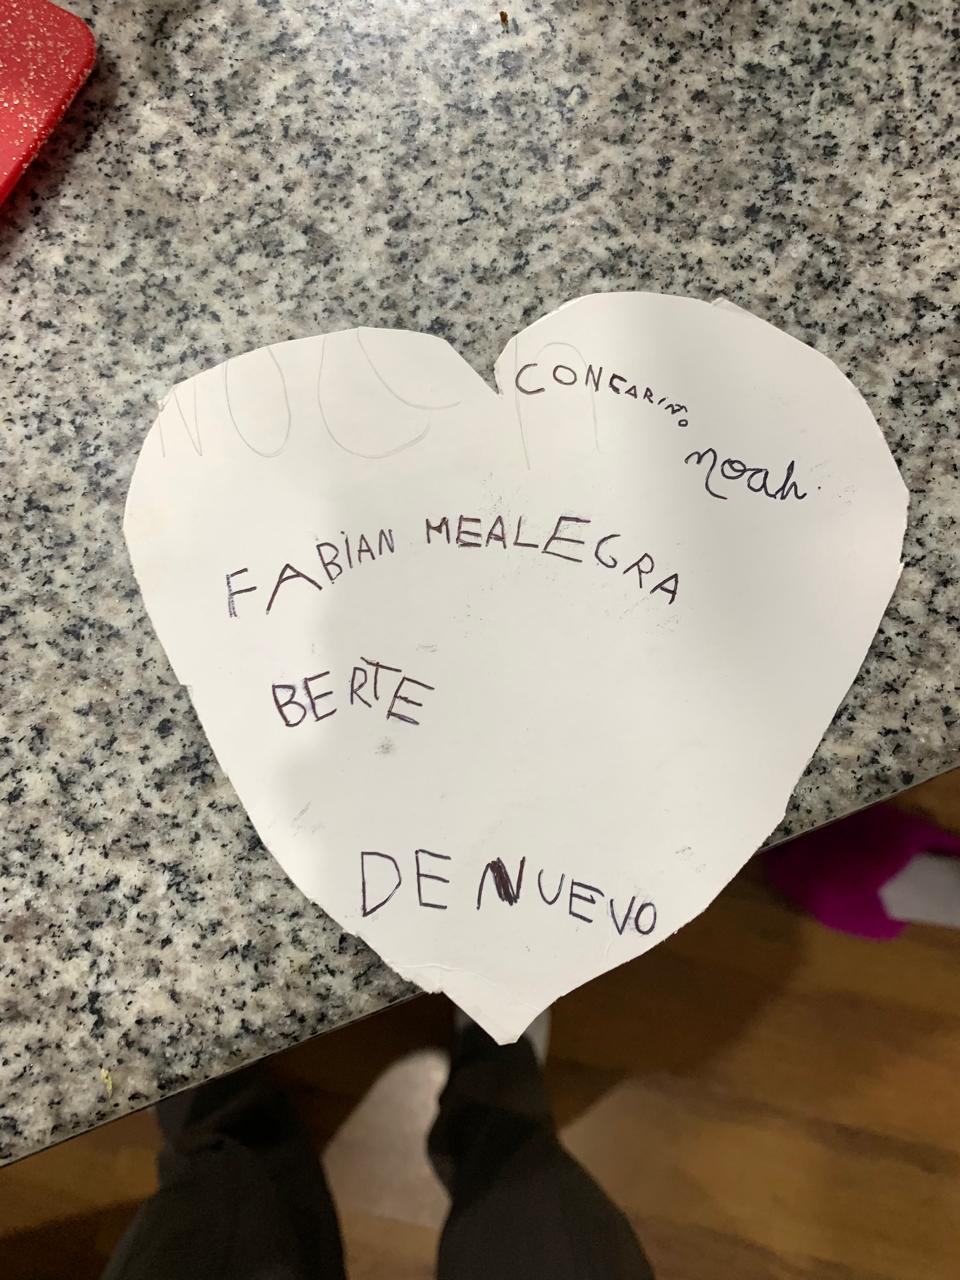 CONCARIÑO
noah.
FABIAN MEALEGRA
BERTE
DE NUEVO